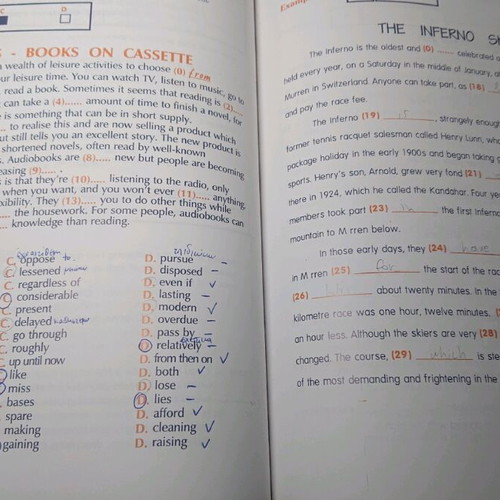 C D
- BOOKS ON CASSETTE
wealth of leisure activities to choose (0) from
ur leisure time. You can watch TV, listen to music, go to
read a book. Sometimes it seems that reading is (2)....
can take a (4)..... amount of time to finish a novel, for
e is something that can be in short supply.
.... to realise this and are now selling a product which
ut still tells you an excellent story. The new product is
shortened novels, often read by well-known
s. Audiobooks are (8)..... new but people are becoming
easing (9)..... .
s is that they're (10)..... listening to the radio, only
when you want, and you won't ever (11)..... anything.
xibility. They (13)..... you to do other things while
.... the housework. For some people, audiobooks can
.... knowledge than reading.
C. oppose to D. pursue –
C. lessened D. disposed –
C. regardless of D. even if ✓
C. considerable D. lasting –
C. present D. modern ✓
C. delayed D. overdue –
C. go through D. pass by –
C. roughly D. relatively –
C. up until now D. from then on ✓
C. like D. both ✓
C. miss D. lose –
bases D. lies –
spare D. afford ✓
making D. cleaning ✓
gaining D. raising ✓
THE INFERNO S
The Inferno is the oldest and (0) celebrated
held every year, on a Saturday in the middle of January,
Murren in Switzerland. Anyone can take part, as (16)
and pay the race fee.
The Inferno (19) strangely enough
former tennis racquet salesman called Henry Lunn, who
package holiday in the early 1900s and began taking
sports. Henry's son, Arnold, grew very fond (21)
there in 1924, which he called the Kandahar. Four ye
members took part (23) the first Infern
mountain to M rren below.
In those early days, they (24) have
in M rren (25) for the start of the rac
(26) about twenty minutes. In the
kilometre race was one hour, twelve minutes.
an hour less. Although the skiers are very (28)
changed. The course, (29) which is ste
of the most demanding and frightening in the